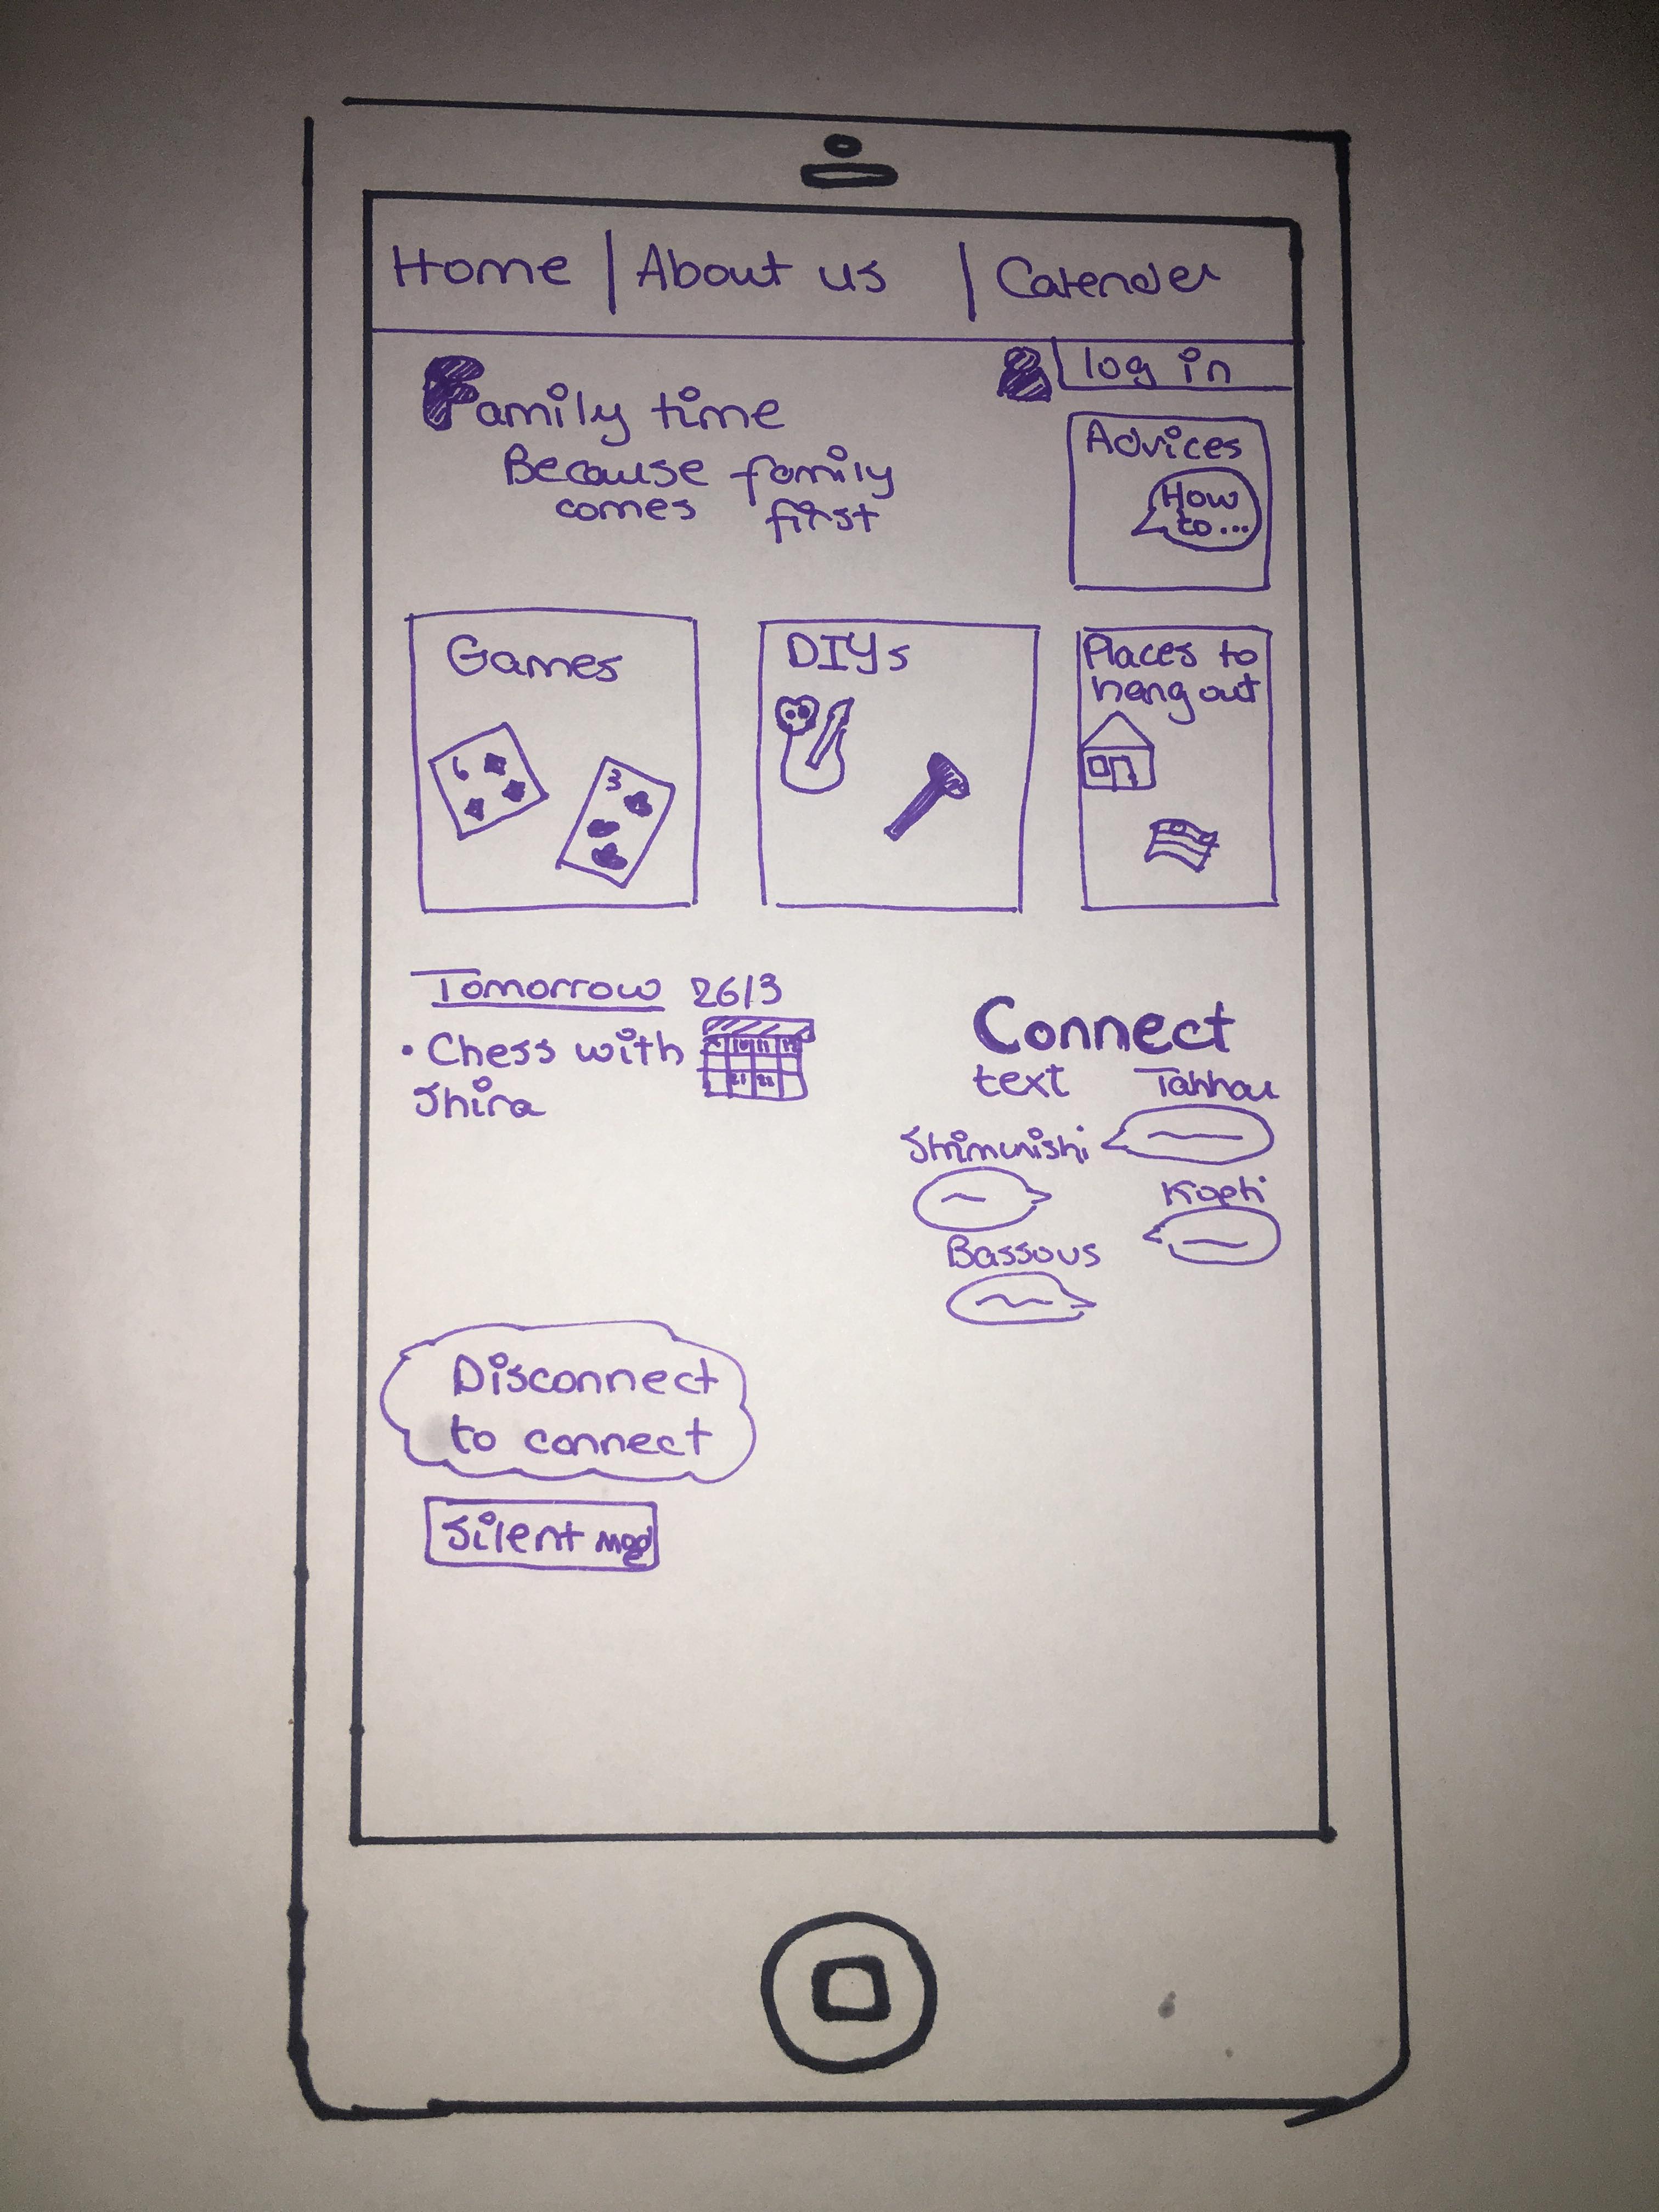 Home | About us | Calender
log in
Family time
Because family
comes first
Advices
How
to...
Games
6
3
DIYs
Places to
hang out
Tomorrow 26/3
• Chess with
Shira
Connect
text
Shimunishi
Bassous
Disconnect
to connect
Silent mode